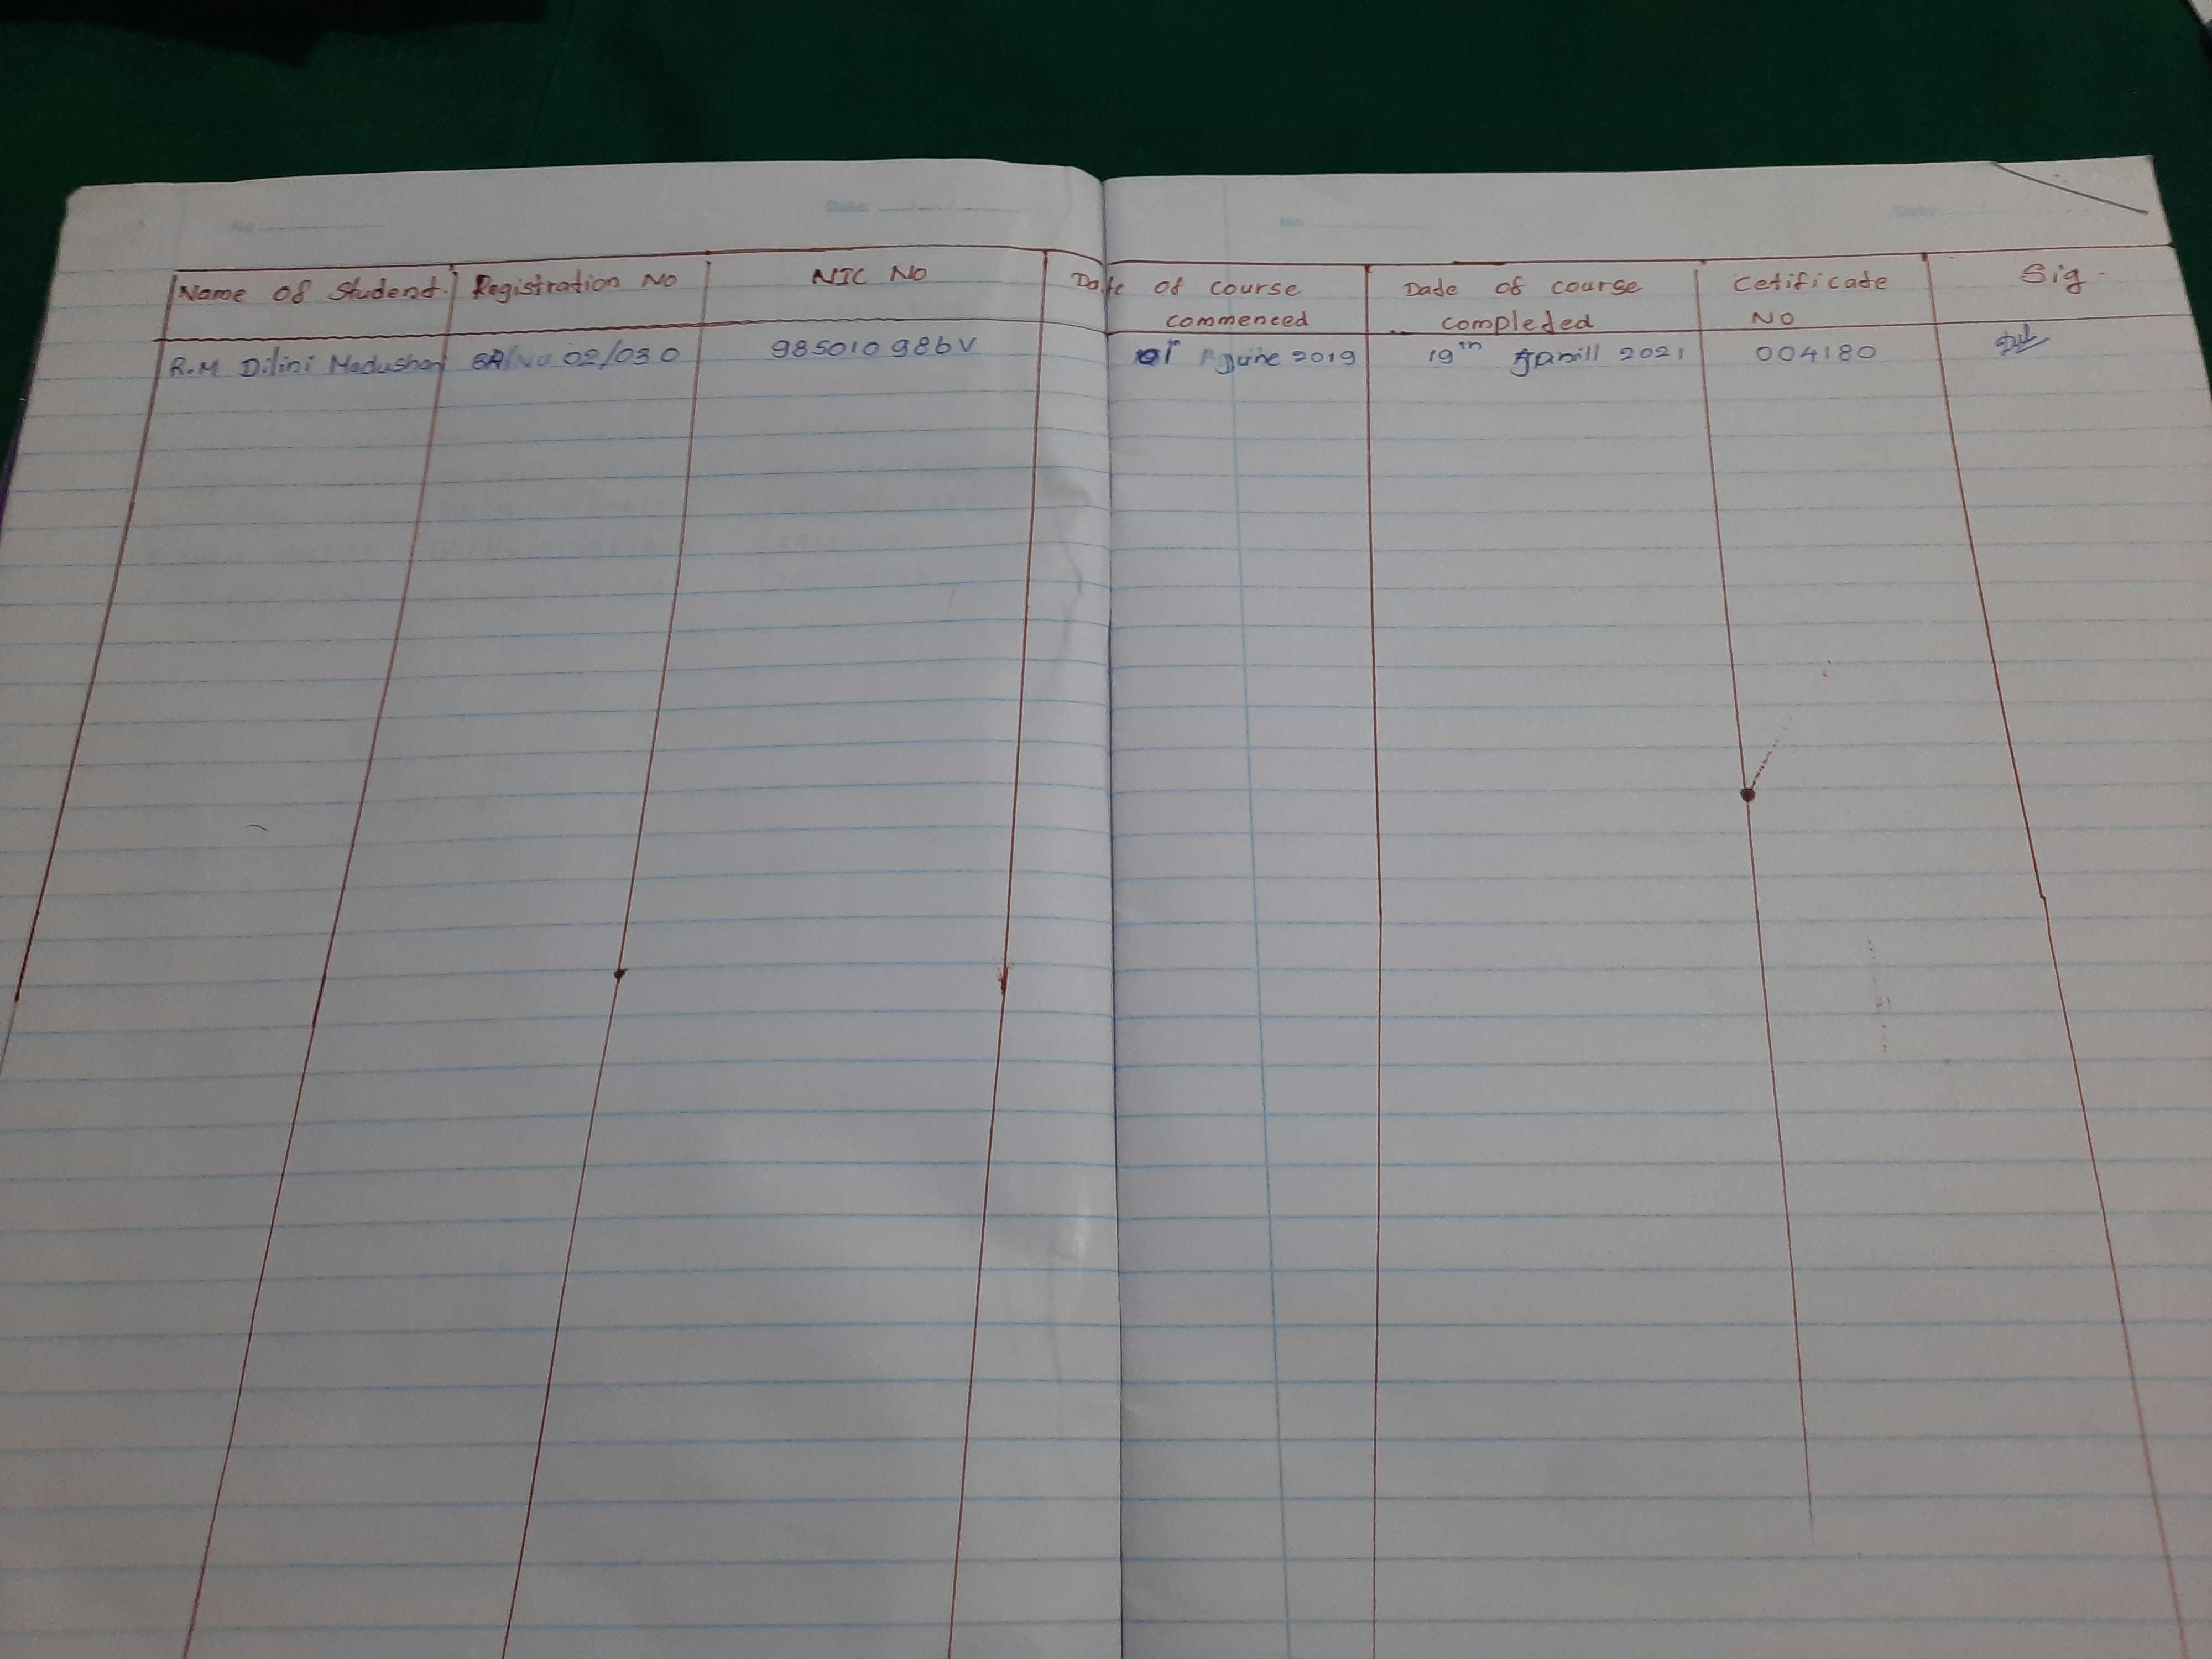 No
Date:
No
Date:
Name of Student Registration No NIC No Date of course commenced Dade of course compleded Cetificade NO Sig -
R.M Dilini Madushan 02/030 985010986V 01 June 2019 19th Aprill 2021 004180